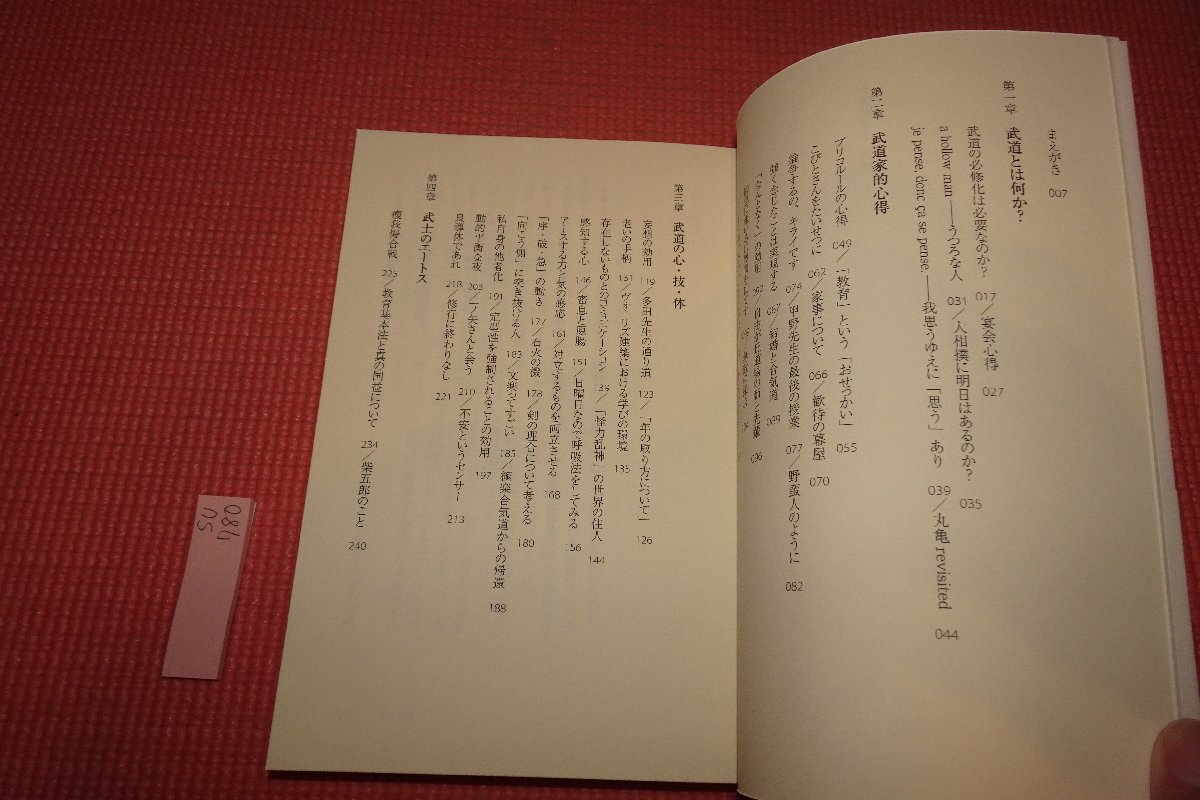 まえがき 007
第一章 武道とは何か?
武道の必修化は必要なのか? 017/宴会心得 027
a hollow man――うつろな人 031/大相撲に明日はあるのか? 035
je pense, donc ça se pense――我思うゆえに「思う」あり 039/丸亀 revisited 044
第二章 武道家的心得
ブリコルールの心得 049/「教育」という「おせっかい」 055
こびとさんをたいせつに 062/家事について 066/歓待の幕屋 070
論争するの、キライです 074/甲野先生の最後の授業 077/野蛮人のように 082
強く念じたことは実現する 087/結婚と合気道 089
「なんとなく」の効用 092
096
第三章 武道の心・技・体
妄想の効用 119/多田先生の通り道 123/「年の取り方について」 126
老いの手柄 131/ヴォーリズ建築における学びの環境 135
存在しないものとのコミュニケーション 139/「怪力乱神」の世界の住人 144
感知する心 146/窓息と原腸 151/日曜日なので呼吸法をしてみる 156
アースする方と気の感応 161/対立するものを両立させる 168
「序・破・急」の動き 171/石火の機 178/剣の理合について考える 180
「向こう側」に突き抜ける人 183/文楽ってすごい 185/極楽合気道からの帰還 188
私自身の他者化 191/定型性を強制されることの効用 197
動的平衡な夜 203/ワ矢さんと会う 210/不安というセンサー 213
良導体であれ 218/修行に終わりなし 221
第四章 武士のエートス
瘦我慢合戦 225/教育基本法と真の国益について 234/柴五郎のこと 240
086
05